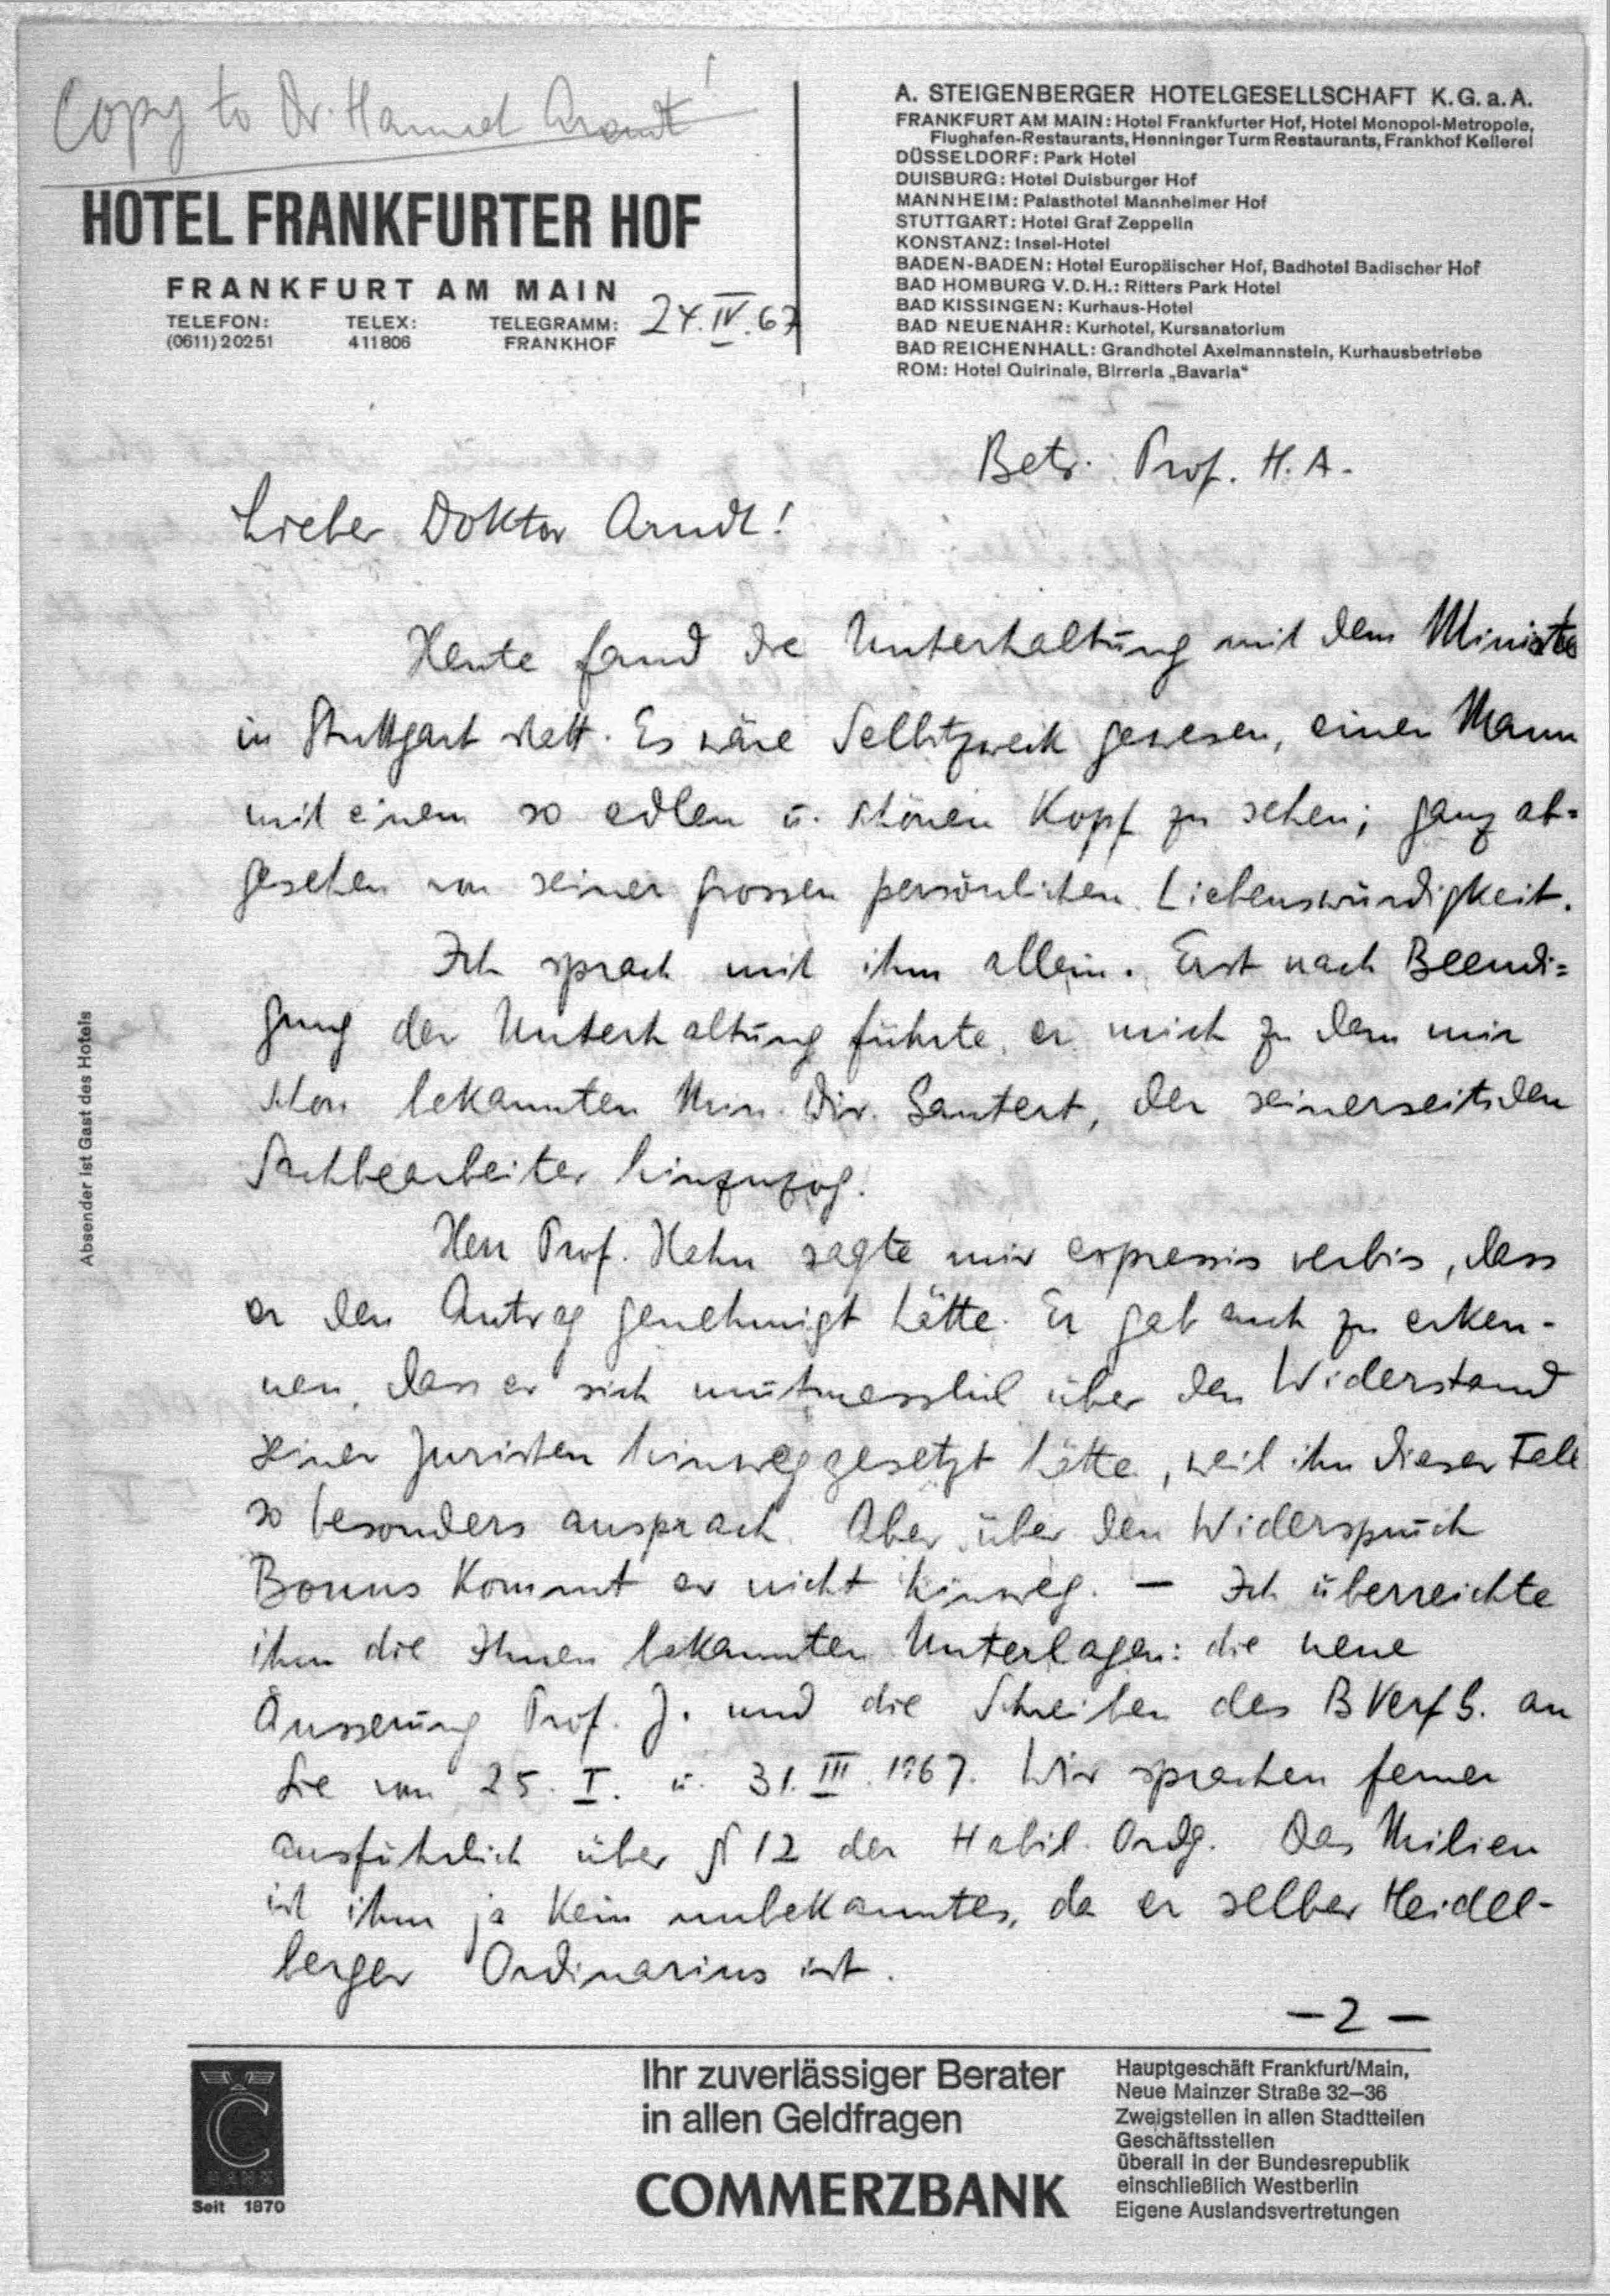 Copy to Dr. Hannah Arendt!
HOTEL FRANKFURTER HOF
FRANKFURT AM MAIN
TELEFON: TELEX: TELEGRAMM:
(0611) 20251 411806 FRANKHOF
24. IV. 67
A. STEIGENBERGER HOTELGESELLSCHAFT K.G.a.A.
FRANKFURT AM MAIN: Hotel Frankfurter Hof, Hotel Monopol-Metropole,
Flughafen-Restaurants, Henninger Turm Restaurants, Frankhof Kellerei
DÜSSELDORF: Park Hotel
DUISBURG: Hotel Duisburger Hof
MANNHEIM: Palasthotel Mannheimer Hof
STUTTGART: Hotel Graf Zeppelin
KONSTANZ: Insel-Hotel
BADEN-BADEN: Hotel Europäischer Hof, Badhotel Badischer Hof
BAD HOMBURG V.D.H.: Ritters Park Hotel
BAD KISSINGEN: Kurhaus-Hotel
BAD NEUENAHR: Kurhotel, Kursanatorium
BAD REICHENHALL: Grandhotel Axelmannstein, Kurhausbetriebe
ROM: Hotel Quirinale, Birreria „Bavaria“
Betr. Prof. H. A.
Lieber Doktor Arndt!
Heute fand die Unterhaltung mit dem Minister
in Stuttgart statt. Es wäre Selbstzweck gewesen, einen Mann
mit einem so edlen u. schönen Kopf zu sehen; ganz ab=
gesehen von seiner grossen persönlichen Liebenswürdigkeit.
Ich sprach mit ihm allein. Erst nach Beendi=
gung der Unterhaltung führte er mich zu dem mir
schon bekannten Min. Dir. Sautert, der seinerseits den
Sachbearbeiter hinzuzog.
Herr Prof. Hahn sagte mir expressis verbis, dass
er den Antrag genehmigt hätte. Er gab auch zu erken-
nen, dass er sich mutmasslich über den Widerstand
seiner Juristen hinweggesetzt hätte, weil ihn dieser Fall
so besonders ansprach. Aber über den Widerspruch
Bonns kommt er nicht hinweg. — Ich überreichte
ihm die Ihnen bekannten Unterlagen: die neue
Äusserung Prof. J. und die Schreiben des BVerfG. an
Sie von 25. I. u. 31. III. 1967. Wir sprachen ferner
ausführlich über § 12 der Habil. Ordg. Das Milieu
ist ihm ja kein unbekanntes, da er selber Heidel-
berger Ordinarius ist.
— 2 —
Absender ist Gast des Hotels
C
BANK
Seit 1870
Ihr zuverlässiger Berater
in allen Geldfragen
COMMERZBANK
Hauptgeschäft Frankfurt/Main,
Neue Mainzer Straße 32–36
Zweigstellen in allen Stadtteilen
Geschäftsstellen
überall in der Bundesrepublik
einschließlich Westberlin
Eigene Auslandsvertretungen